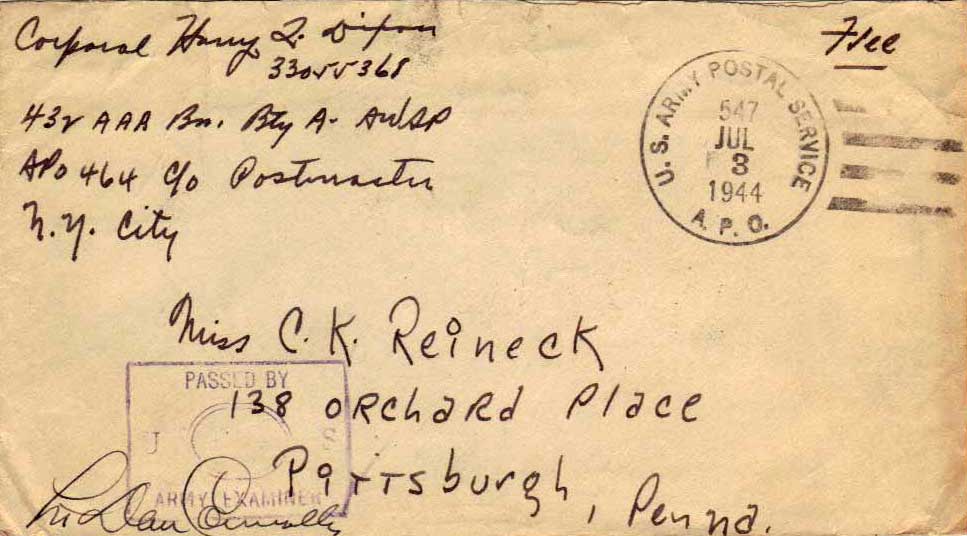 Corporal Harry L. Dixon
33055368
432 AAA Bn. Bty A- AWSP
APO 464 c/o Postmaster
N.Y. City
Free
U. S. ARMY POSTAL SERVICE
547
JUL
3
1944
A. P. O.
Miss C. K. Reineck
138 Orchard Place
Pittsburgh, Penna.
PASSED BY
U S
ARMY EXAMINER
Connolly